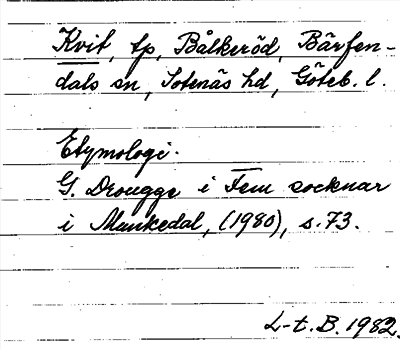 Kvit, tp, Bålkeröd, Bärfen-
dals sn, Sotenäs hd, Göteb. l.
Etymologi.
G. Drougge i Fem socknar
i Munkedal, (1980), s. 73.
L-t. B. 1982.